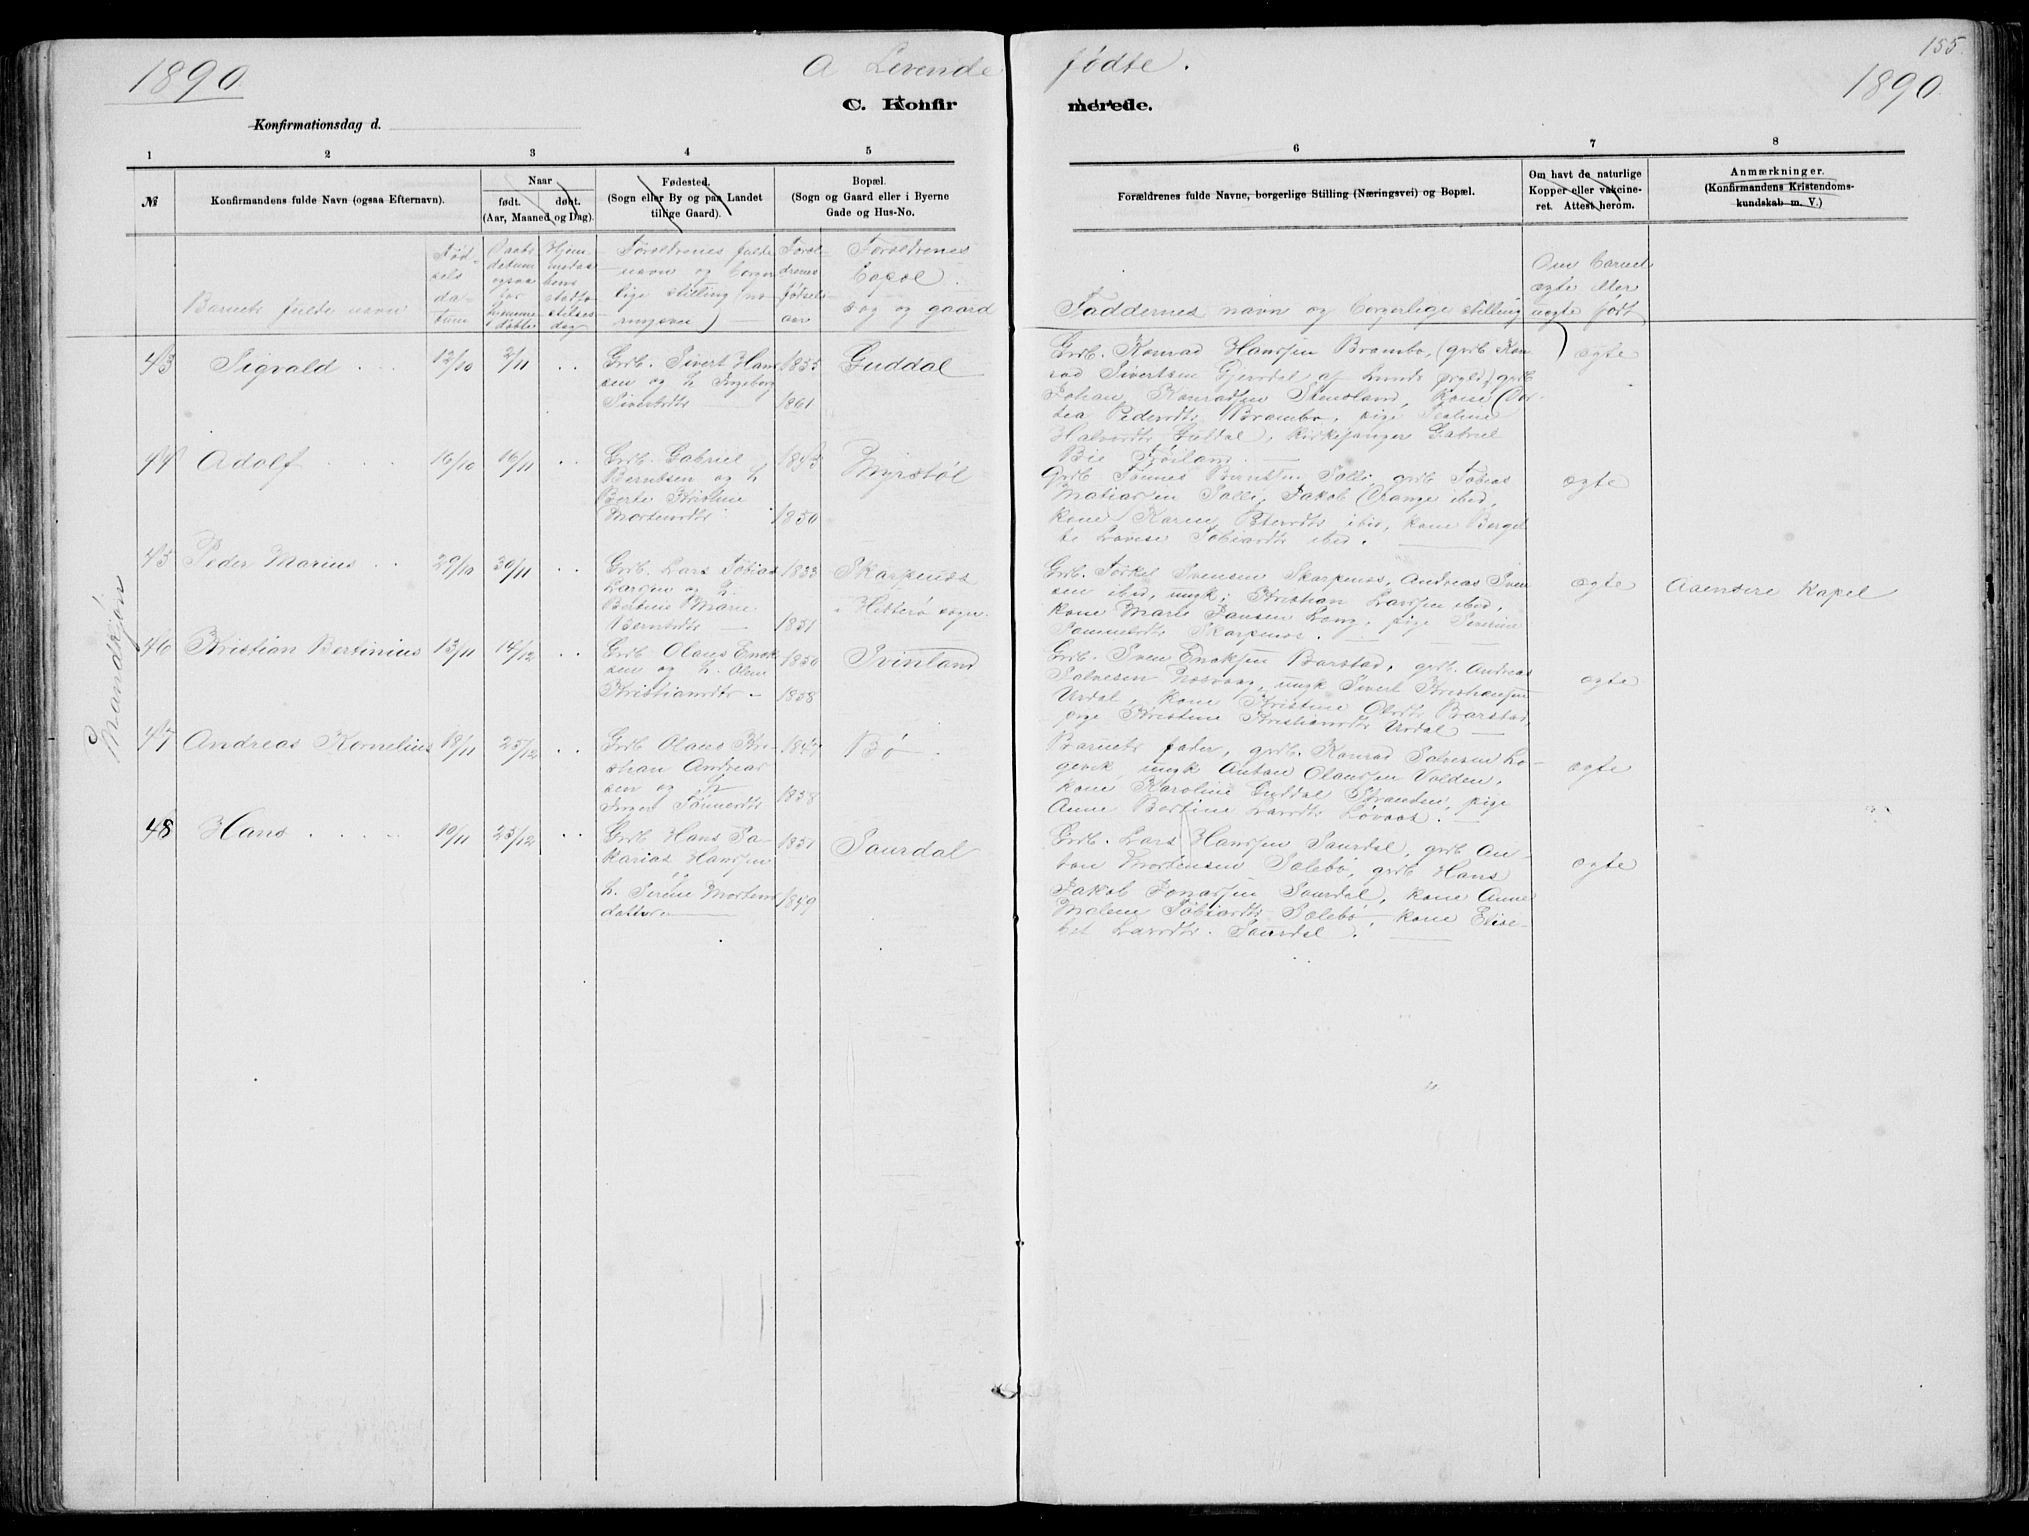 155.
1890.
A Levende
fødte.
1890
C. Konfir
merede.
Konfirmationsdag d.
1
2
3
4
5
6
7
8
№
Konfirmandens fulde Navn (ogsaa Efternavn).
Naar
født. døbt.
(Aar, Maaned og Dag).
Fødested.
(Sogn eller By og paa Landet
tillige Gaard).
Bopæl.
(Sogn og Gaard eller i Byerne
Gade og Hus-No.
Forældrenes fulde Navne, borgerlige Stilling (Næringsvei) og Bopæl.
Om havt de naturlige
Kopper eller vakcine-
ret. Attest herom.
Anmærkninger.
(Konfirmandens Kristendoms-
kundskab m. V.)
Barnets fulde navn
Fød-
sels
da-
tum
Daabs
datum
ogsaa
for
hjemme
døbte
Hjem
medaa
bens
stadfæ
stelses
dag
Forældrenes fulde
navn og borger
lige stilling (næ
ringsvei)
Foræl-
drenes
fødsels-
aar
Forældrenes
bopæl.
sog og gaard
Faddernes navn og borgerlige stilling
Om barnet
ægte eller
uægte født
Mandkjøn
43 Sigvald 12/10 2/11
Grdb. Sivert Han
sen og h. Ingeborg
Sivertsdtr
1855
1861
Guddal
Grdb. Konrad Hanssen Brambo, (grdb. Kon
rad Sivertsen Gjerdal af Lunds prgld,) grdb
Johan Konradsen Stensland, kone
Pedersdtr Brambo, pige
Halvorsdtr Guddal, kirkesanger Gabriel
Bie
ægte
44 Adolf 16/10 16/11
Grdb. Gabriel
Berntsen og h
Berte Kristine
Mortensdtr
1843
1850
Myrstøl
Grdb Tønnes Berntsen Solli, grdb Tobias
Matiassen Solli, Jakob ibid,
kone Karen Petersdtr ibid, kone Berget
te Lovise Tobiasdtr ibid.
ægte
45 Peder Marius 29/10 30/11
Grdb. Lars Tobias
Larssen og h.
Bertine Marie
Berntsdtr
1833
1851
Skarpenes
i Hitterø sogn.
Grdb. Torkel Svensen Skarpenes, Andreas Sven
sen ibid, ungk; Kristian Larssen ibid,
kone Marie Jansen Long, pige Severine
Sammelsdtr Skarpenes.
ægte
Aaensire Kapel
46 Kristian Bertinius 13/11 14/12
Grdb Olaus Enok
sen og h. Oline
Kristiansdtr
1850
1858
Svinland
Grdb. Sven Enoksen Barstad, grdb. Andreas
Salvesen , ungk Sivert Kristiansen
Urdal, kone Kristine Olsdtr Barstad
pige Kristine Kristiansdtr Urdal
ægte
47 Andreas Kornelius 18/11 25/12
Grdb Olaus Kri-
stian Andreas
sen og h
Inger Tønnesdtr
1847
1858
Bø
Barnets fader, grdb. Konrad Salvesen Lo
gevik, ungk Anton Olaussen Valden,
kone Karoline Guddal Stranden, pige
Anne Bertine Larsdtr Løvaas.
ægte
48 Hans 10/11 25/12
Grdb Hans Sa-
karias Hanssen
h. Serine Mortens
datter
1851
1849
Saurdal
Grdb. Lars Hanssen Saurdal, grdb An-
ton Mortensen Solebø, grdb Hans
Jakob Jonassen Saurdal, kone Anne
Malene Tobiasdtr Solebø, kone Elisa-
bet Larsdtr. Saurdal.
ægte